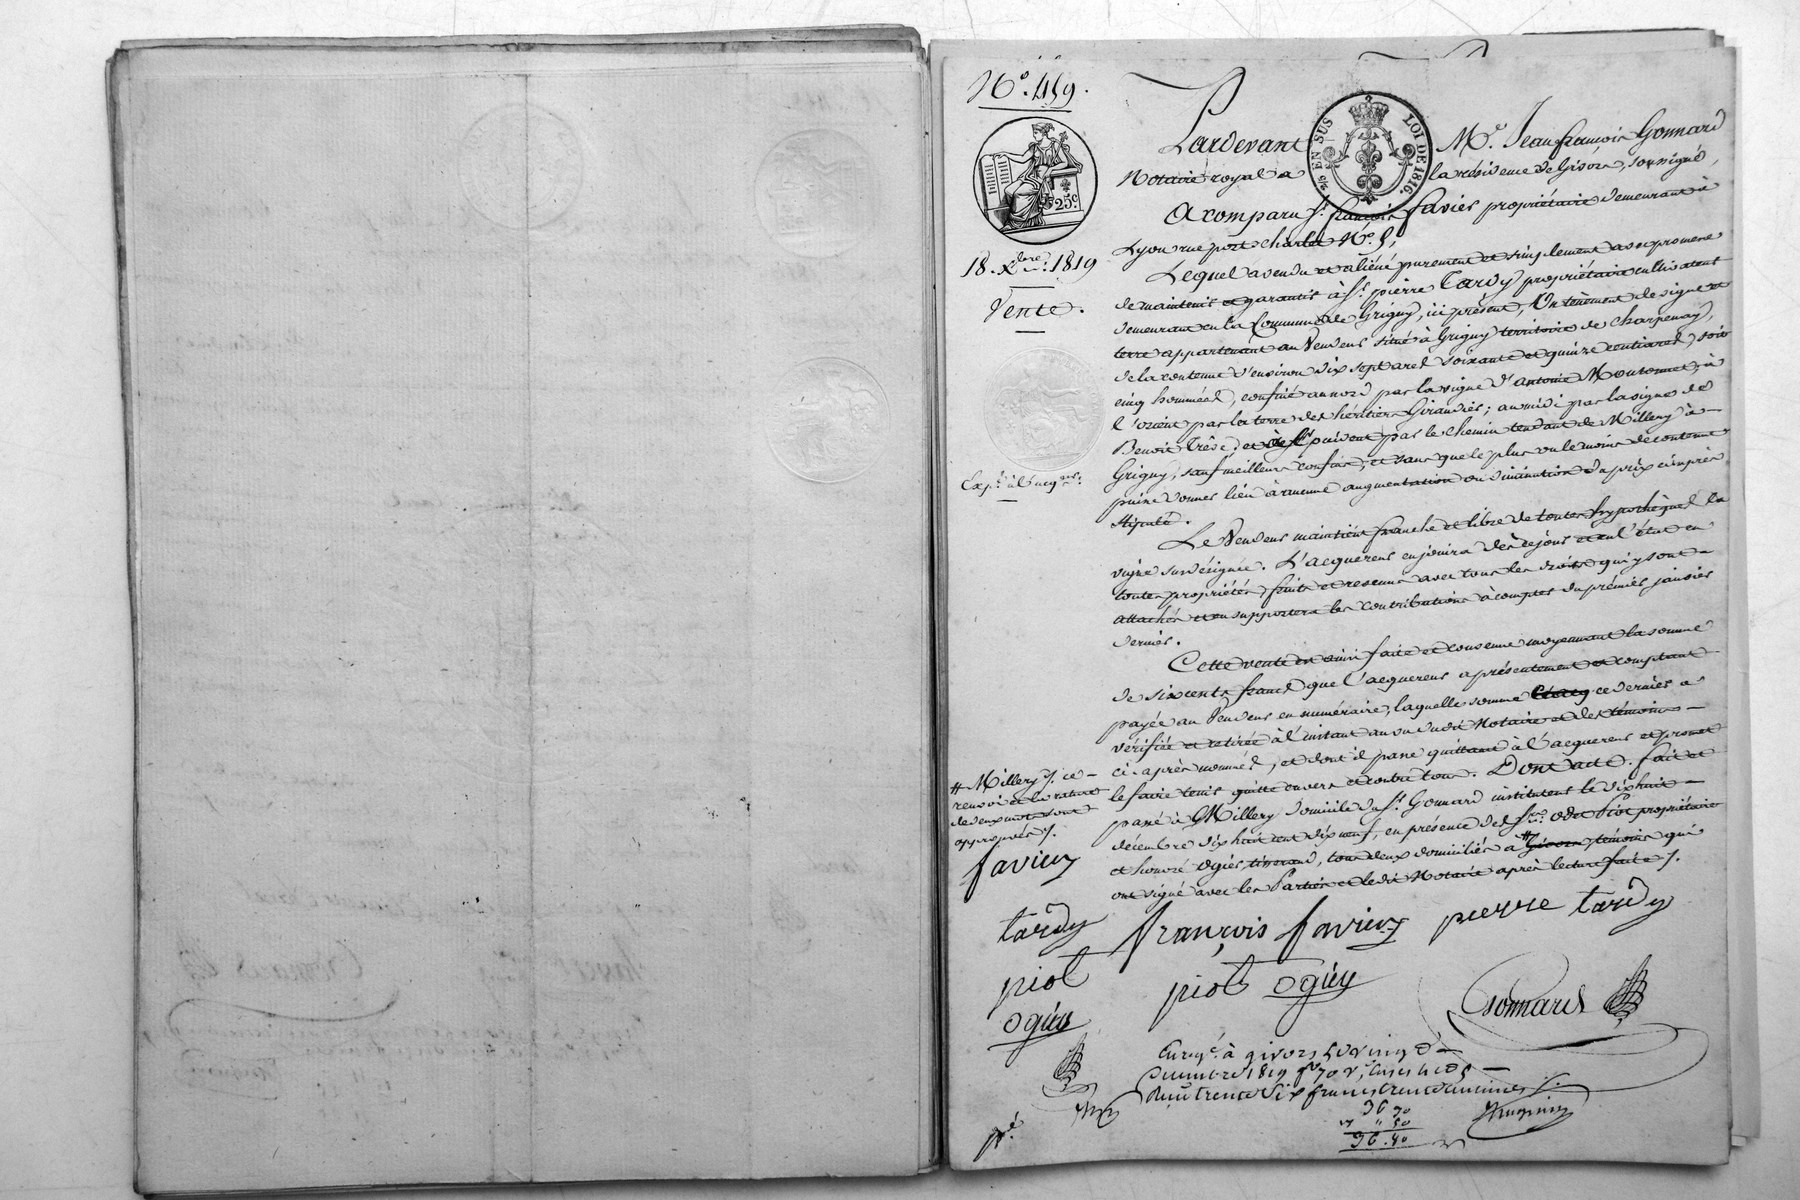 N.º 459.
25.c
18. Xbre. 1819
Vente.
Exp.on à l'acqreur.
EN SUS LOI DE 1816.
Pardevant M.e Jean françois Gonnard
Notaire royal à la résidence de Givors, soussigné,
A comparu S.r françois favier propriétaire demeurant à
Lyon rue port charlet N.º 5,
Lequel a vendu et aliéné purement et simplement avec promesse
de maintenir et garantir à S.r pierre Tardy propriétaire cultivateur
demeurant en la Commune de Grigny, ici présent, Un tènement de vigne et
terre appartenant au Vendeur situé à Grigny territoire de charpenay,
de la contenue d'environ dix sept ares soixante et quinze centiares, soit
cinq hommées, confiné au nord par la vigne d'antoine Moutonnet, à
l'orient par la terre des héritiers Giraudier; au midi par la vigne de
Benoit Trêve; et à l'occident par le chemin tendant de Millery à
Grigny, sauf meilleurs confins, et sans que le plus ou le moins de contenue
puisse donner lieu à aucune augmentation ou diminution du prix ci-après
stipulé.
Le Vendeur maintient franche et libre de toutes hypothèques la
vigne sus désignée. L'acquereur en jouira dès ce jour et en l'état en
toute propriété, fruits et revenus avec tous les droits qui y sont
attachés et en supportera les contributions à compter du premier janvier
dernier.
Cette vente est ainsi faite et convenue moyennant la somme
de six cents francs que l'acquereur a présentement et comptant
payée au Vendeur en numéraire, laquelle somme ce dernier a
vérifiée et retirée à l'instant au vu dudit Notaire et des témoins
ci-après nommés, et dont il passe quittance à l'acquereur et promet
le faire tenir quitte envers et contre tous. Dont acte. fait et
passé à Millery domicile du S.r Gonnard instituteur le dix huit
décembre dix huit cent dix neuf, en présence des S.rs Piot propriétaire
et honoré Ogier, tisserand, tous deux domiciliés à # Givors témoins qui
ont signé avec les Parties et ledit Notaire après lecture faite ./.
# Millery ./. ce
renvoi et la rature
de deux mots sont
approuvés ./.
favier
tardy
piot
ogier
françois favier pierre tardy
piot ogier
Gonnard
Enreg.é à givors le vingt
Decembre 1819 f.o 70 v.o Cases 4 et 5
Reçu trente Six francs trente centimes ./.